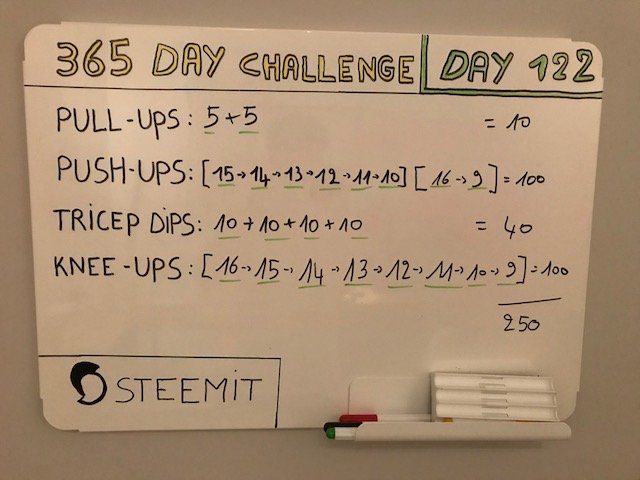 365 DAY CHALLENGE DAY 122
PULL-UPS: 5+5 = 10
PUSH-UPS: [15→14→13→12→11→10] [16→9] = 100
TRICEP DIPS: 10+10+10+10 = 40
KNEE-UPS: [16→15→14→13→12→11→10→9] = 100
250
STEEMIT